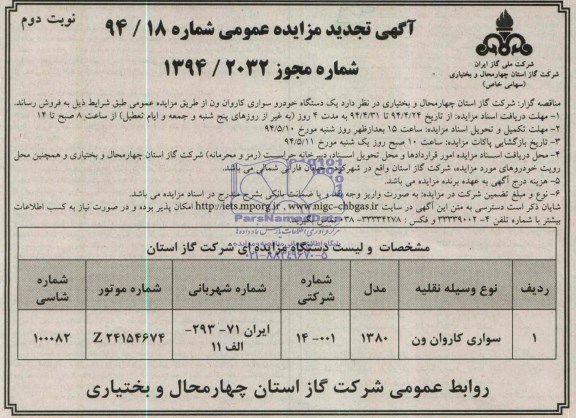 نوبت دوم
آگهی تجدید مزایده عمومی شماره ۱۸ / ۹۴
شماره مجوز ۲۰۳۲ / ۱۳۹۴
شرکت ملی گاز ایران
شرکت گاز استان چهارمحال و بختیاری
(سهامی خاص)
مناقصه گزار: شرکت گاز استان چهارمحال و بختیاری در نظر دارد یک دستگاه خودرو سواری کاروان ون از طریق مزایده عمومی طبق شرایط ذیل به فروش رساند.
۱- مهلت دریافت اسناد مزایده: از تاریخ ۹۴/۴/۲۴ تا ۹۴/۴/۳۱ به مدت ۴ روز (به غیر از روزهای پنج شنبه و جمعه و ایام تعطیل) از ساعت ۸ صبح تا ۱۴
۲- مهلت تکمیل و تحویل اسناد مزایده: ساعت ۱۵ بعدازظهر روز شنبه مورخ ۹۴/۵/۱۰
۳- تاریخ بازگشایی پاکات مزایده: ساعت ۱۰ صبح روز یک شنبه مورخ ۹۴/۵/۱۱
۴- محل دریافت اسناد مزایده امور قراردادها و محل تحویل اسناد، دبیرخانه حراست (رمز و محرمانه) شرکت گاز استان چهارمحال و بختیاری و همچنین محل
رویت خودروهای مورد مزایده، شرکت گاز استان واقع در شهرکرد خیابان فارابی شمالی می باشد.
۵- هزینه درج آگهی به عهده برنده مزایده می باشد.
۶- نوع و مبلغ تضمین شرکت در مزایده: به صورت واریز وجه نقد و یا ضمانت بانکی بشرح مندرج در اسناد مزایده می باشد.
شایان ذکر است دسترسی به متن این آگهی در سایت www.nigc-chbgas.ir , http://iets.mporg.ir امکان پذیر بوده و در صورت نیاز به کسب اطلاعات
بیشتر با شماره تلفن ۴- ۳۳۳۳۹۰۰۲ و فکس : ۳۳۳۳۴۲۷۸-۰۳۸
ParsNamadData
۰۲۱-۸۸۳۴۹۶۷۰-۵
مشخصات و لیست دستگاه مزایده ای شرکت گاز استان
ردیف نوع وسیله نقلیه مدل شماره شرکتی شماره شهربانی شماره موتور شماره شاسی
۱ سواری کاروان ون ۱۳۸۰ ۰۰۱- ۱۴ ایران ۷۱- ۲۹۳- الف ۱۱ Z ۲۴۱۵۴۶۷۴ ۱۰۰۰۸۲
روابط عمومی شرکت گاز استان چهارمحال و بختیاری